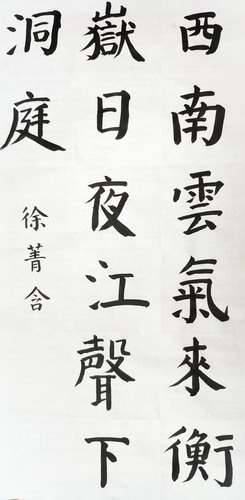 西南雲氣來衡
嶽日夜江聲下
洞庭
徐菁含